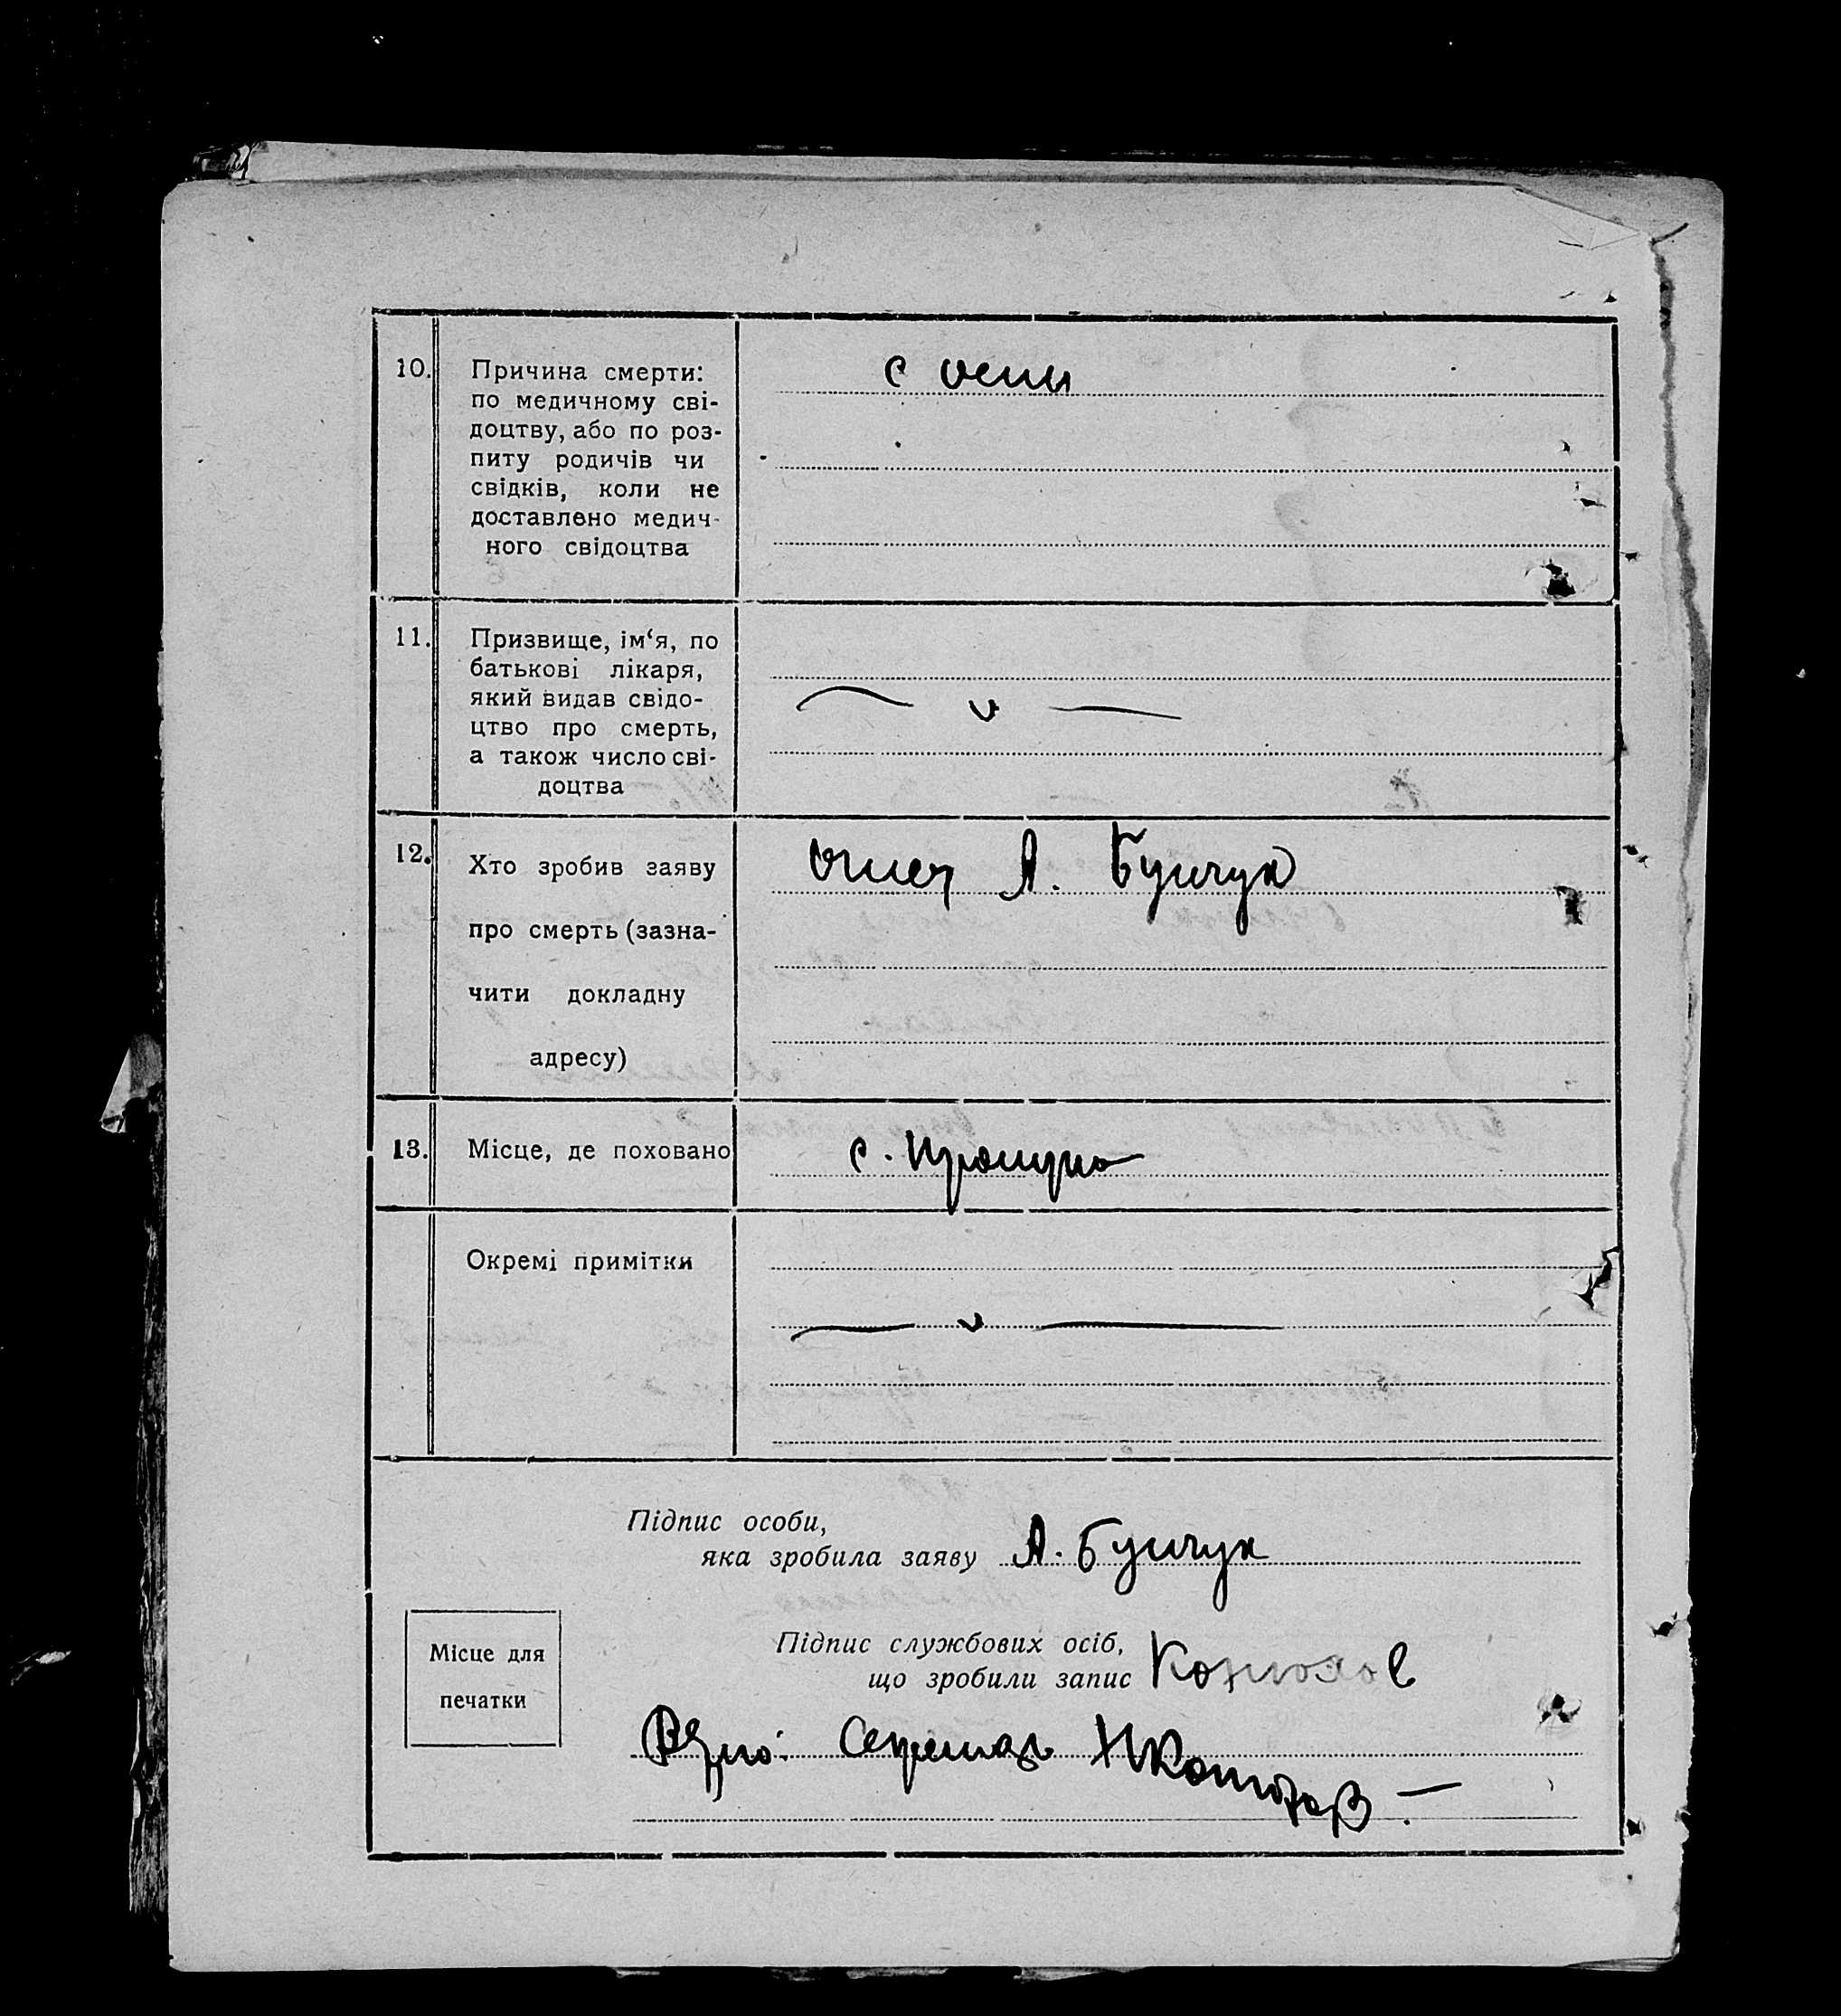 10. Причина смерти: с оспи
по медичному сві-
доцтву, або по роз-
питу родичів чи
свідків, коли не
доставлено медич-
ного свідоцтва
11. Призвище, ім‘я, по
батькові лікаря,
який видав свідо-
цтво про смерть,
а також число сві-
доцтва
12. Хто зробив заяву отец А. Бунчук
про смерть (зазна-
чити докладну
адресу)
13. Місце, де поховано с.
Окремі примітки
Підпис особи,
яка зробила заяву А. Бунчук
Місце для
печатки
Підпис службових осіб,
що зробили запис
Секретар